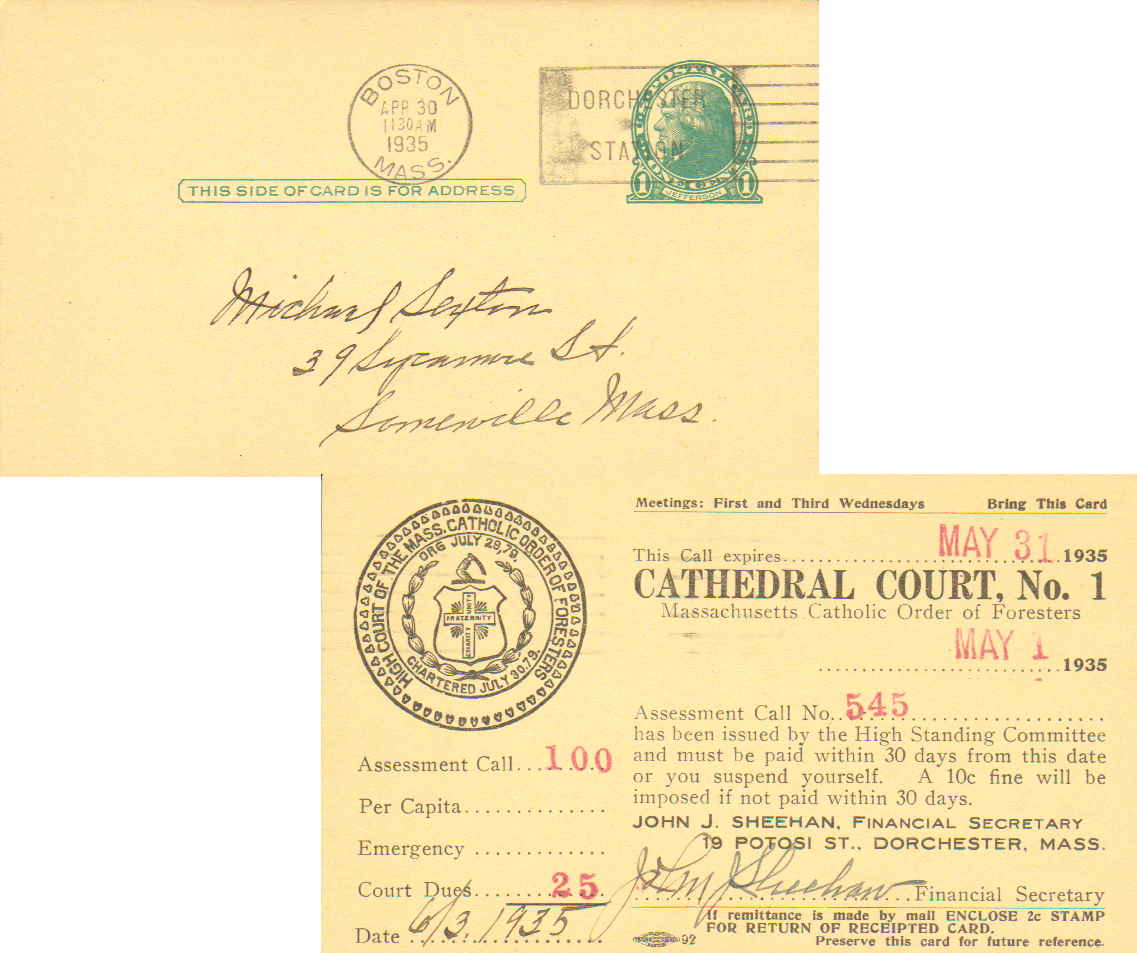 BOSTON
APR 30
1130 AM
1935
MASS.
DORCHESTER
STATION
U.S. POSTAL CARD
ONE CENT
1 JEFFERSON 1
THIS SIDE OF CARD IS FOR ADDRESS
Michael Sexton
39 Sycamore St.
Somerville Mass.
HIGH COURT OF THE MASS. CATHOLIC ORDER OF FORESTERS
ORG JULY 29,79.
UNITY
FRATERNITY
CHARITY
CHARTERED JULY 30.79.
Assessment Call...100
Per Capita.............
Emergency ............
Court Dues........25
Date 6/3. 1935
Meetings: First and Third Wednesdays Bring This Card
This Call expires MAY 31 1935
CATHEDRAL COURT, No. 1
Massachusetts Catholic Order of Foresters
MAY 1
1935
Assessment Call No. 545
has been issued by the High Standing Committee
and must be paid within 30 days from this date
or you suspend yourself. A 10c fine will be
imposed if not paid within 30 days.
JOHN J. SHEEHAN, FINANCIAL SECRETARY
19 POTOSI ST., DORCHESTER, MASS.
John J Sheehan Financial Secretary
If remittance is made by mail ENCLOSE 2c STAMP
FOR RETURN OF RECEIPTED CARD.
92 Preserve this card for future reference.